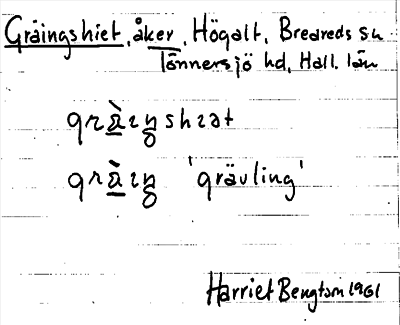 Gräingshiet, åker, Högalt, Breareds sn
Tönnersjö hd, Hall. län
grä̀ıŋshıət
grä̀ıŋ 'grävling'
Harriet Bengtson 1961